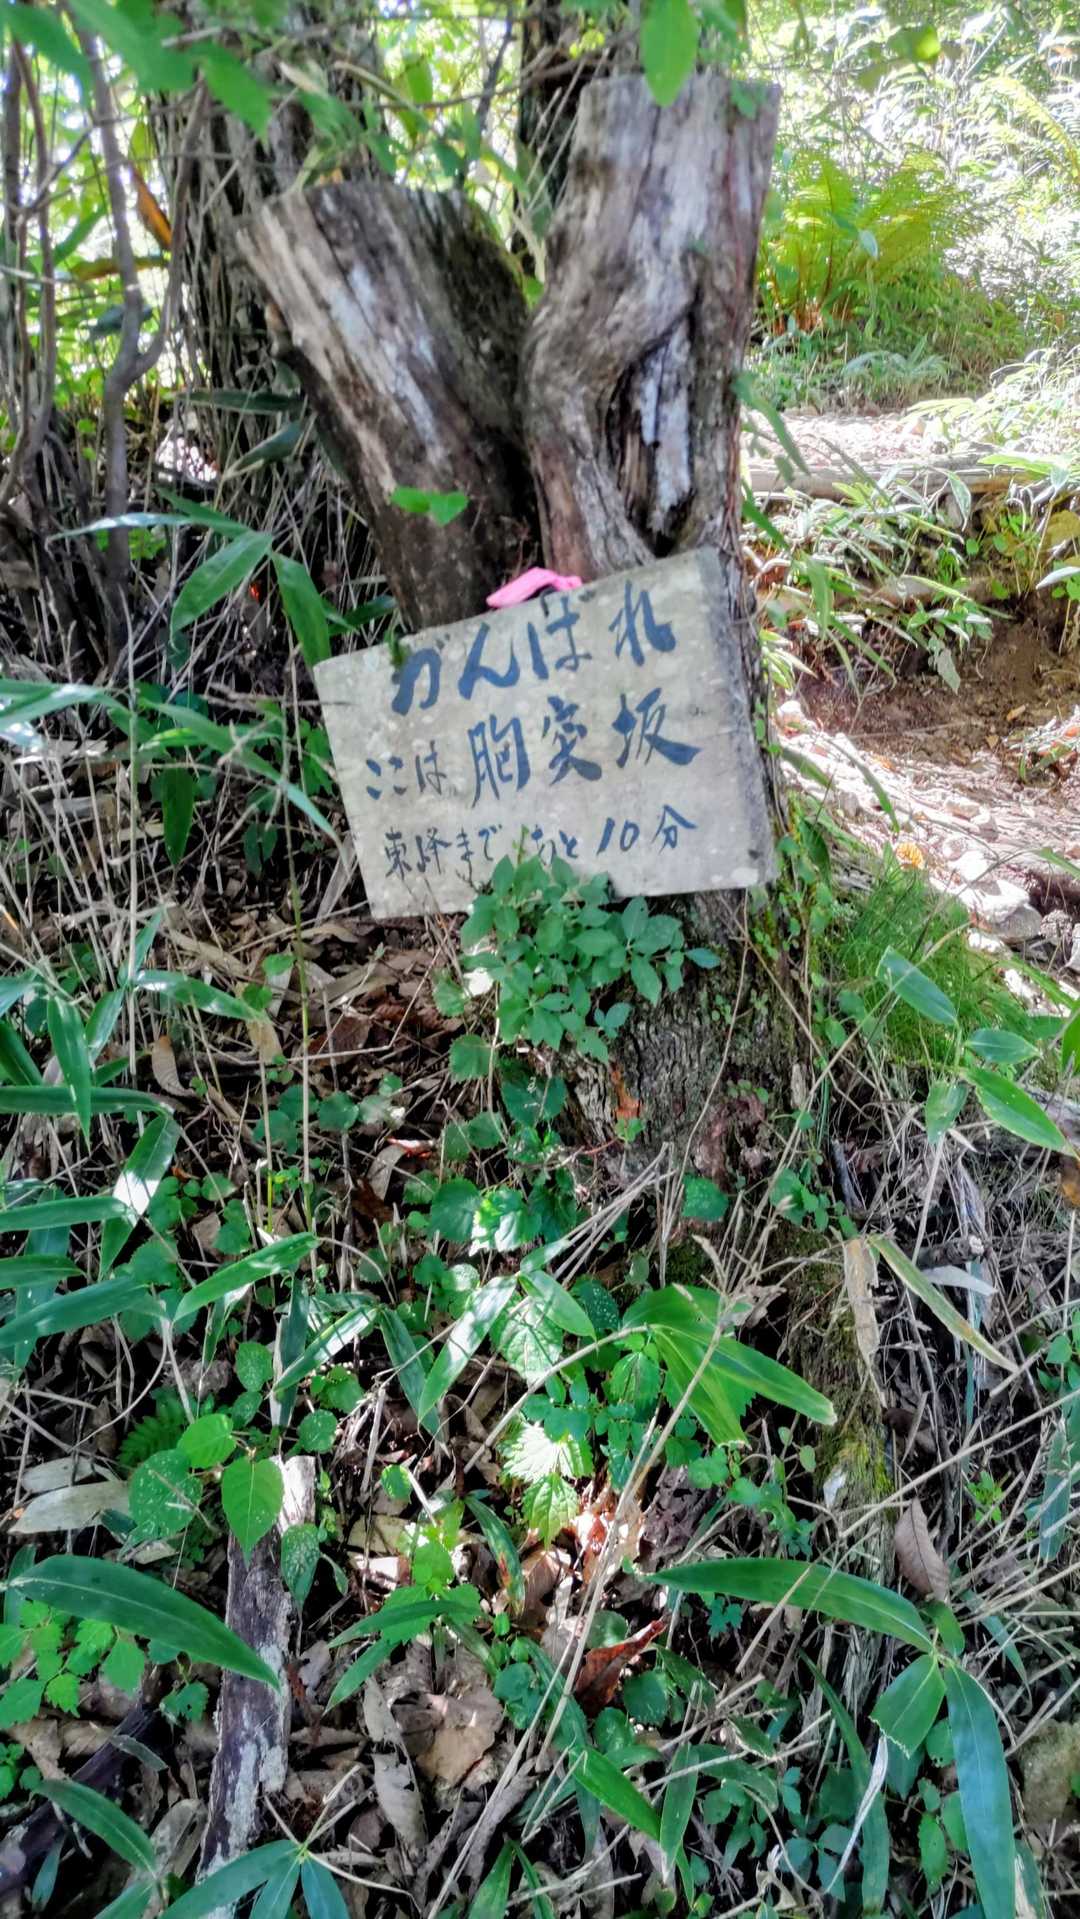 がんばれ
ここは胸突坂
東峰まであと10分